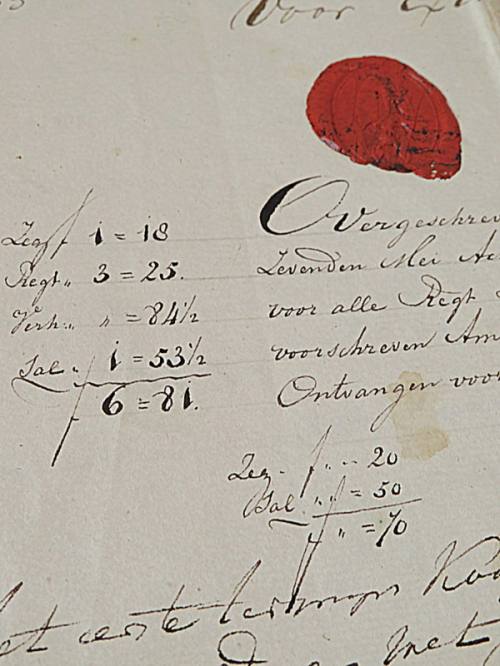 Voor
Zegf 1 = 18
Regt„ 3 = 25.
Verh„ „ = 84½
Sal„ 1 = 53½
f 6 = 81.
Overgeschrev
Zevenden Mei Ac
voor alle Regt
voorschreven Am
Ontvangen voor
Zeg. f „ - 20
Sal „ „ = 50
f „ = 70
et eerste
met